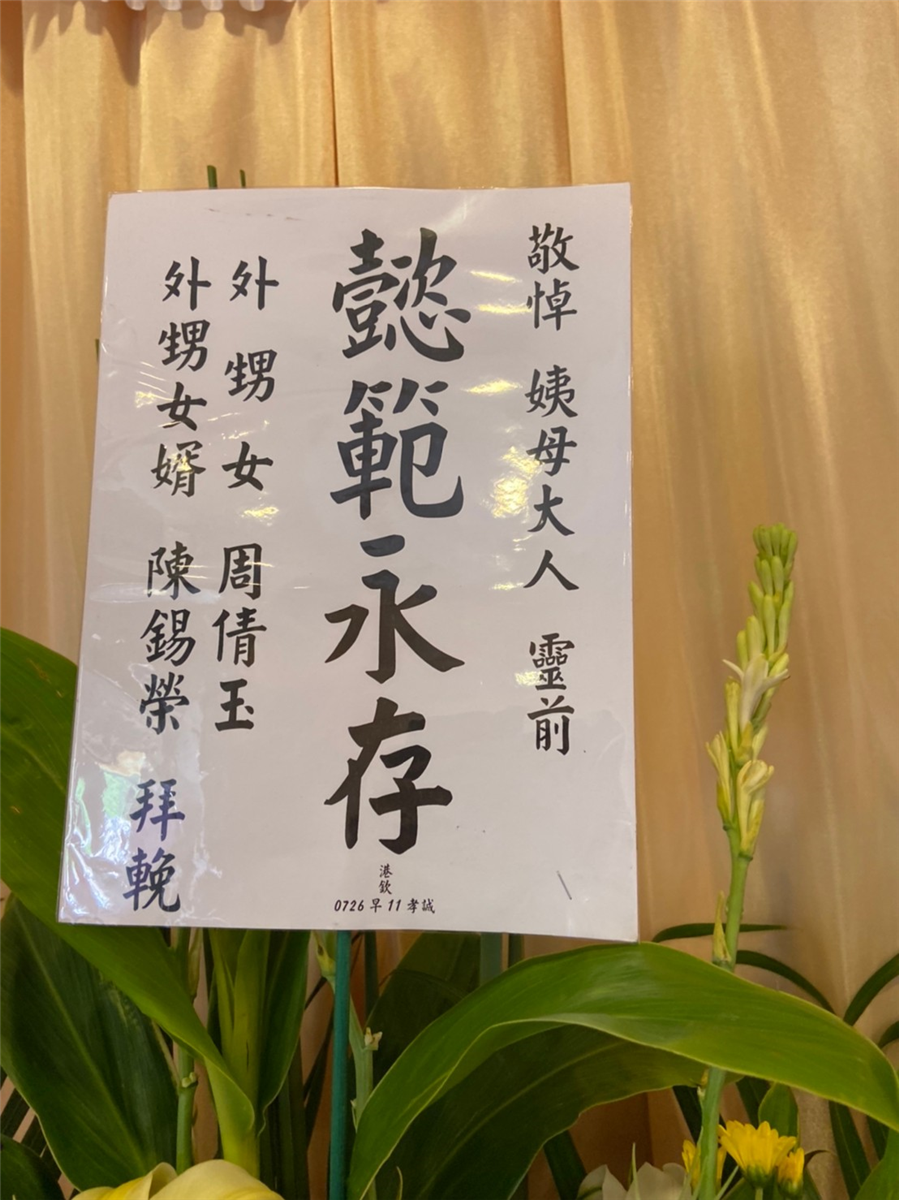 敬悼 姨母大人 靈前
懿範永存
港欽
0726早11孝誠
外甥女 周倩玉
外甥女婿 陳錫榮 拜輓